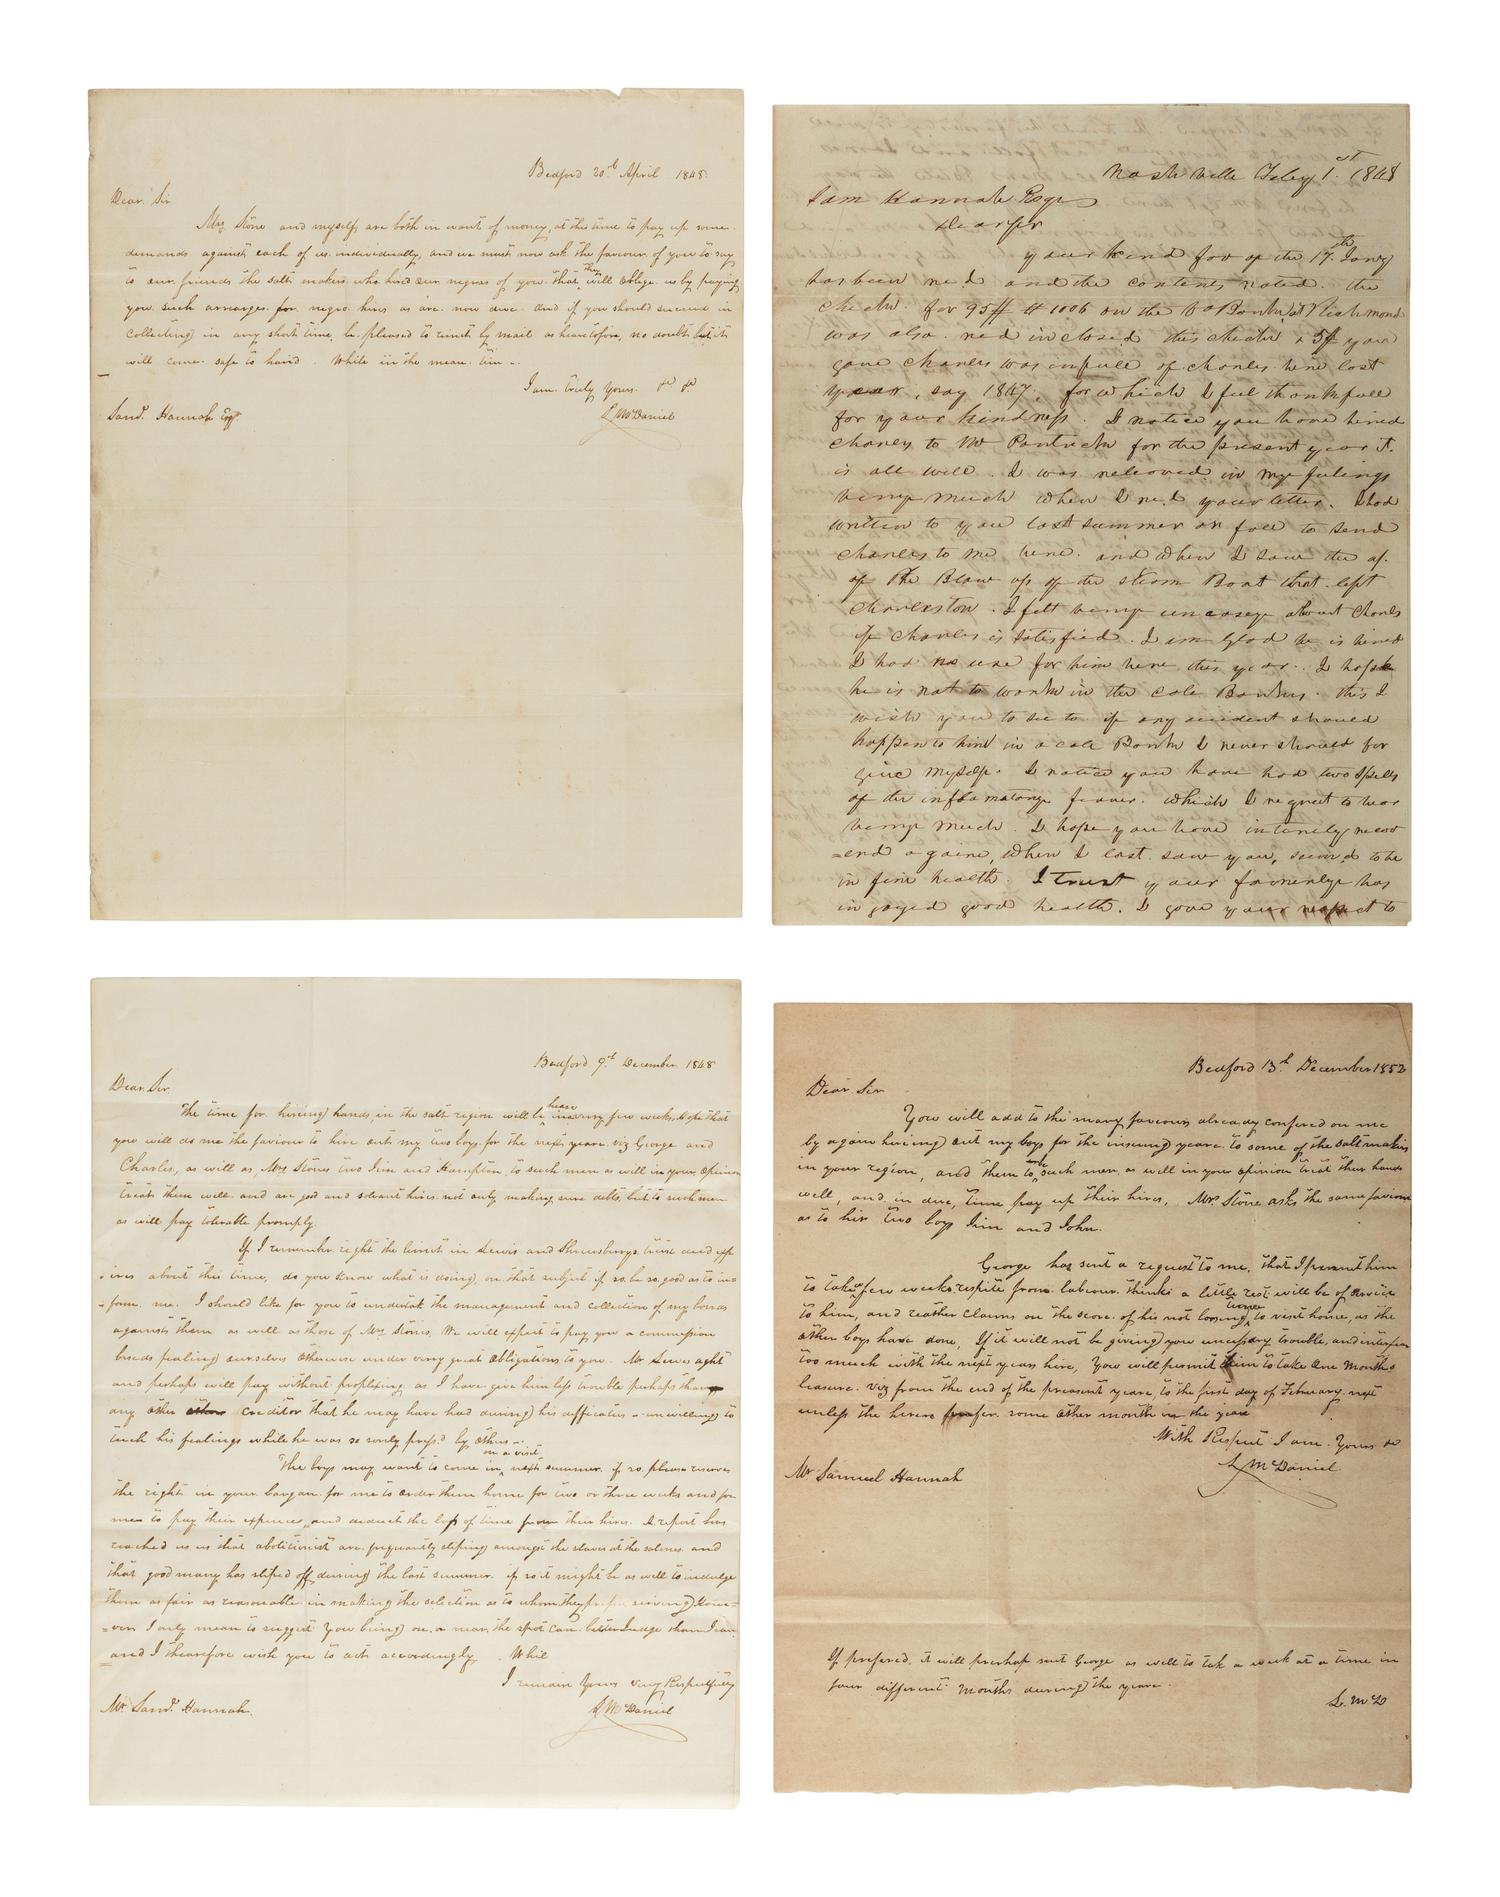 Bedford 20th April 1848.
Dear Sir
Mrs Stone and myself, are both in want of money, at this time to pay up some
demands against each of us individually, and we must now ask the favour of you to say
to our friends the salt makers who hired our negros of you. that they will oblege us by paying
you such arrarges for negro hires as are now due. And if you should succeed in
Collecting in any short time, be pleased to remit by mail as heartofore, no doubt but it
will come safe to hand. While in the mean tim -.
I am truly yours. &c &c
L McDaniel
Saml. Hannah Esqr
Nash ville Feby 1st 1848
Sam Hannah Esqr
Dear Sir
your kind fav of the 17th Jany
has been recd and the contents noted. the
check for 95$ # 1006 on the Bank of Richmond
was also recd inclosed this check & 5$ you
gave Charles was in full of Charles hire last
year, say 1847, for which I ful thankfull
for your kindness. I notice you have hired
Charles to Mr for the present year it
is all well. I was releaved in my felings
verry much when I recd your letter. I had
written to you last summer or fall to send
Charles to me here. and when I saw the
of the Blow up of the steam Boat that left
Charleston. I felt verry uneasey about Charls
if Charles is satisfied. I am Glad he is hired
I had no use for him here this year. I hope
he is not to work in the cole Banks. this I
wish you to see to if any accident should
happen to him in a cole Bank I never should for
give myself. I notice you have had two spells
of the inflamatory feaver. which I regret to hear
verry much. I hope you have intirely recov
=erd againe, when I last saw you, seemd to be
in fine health. I trust your famerly has
injoyed good health. I gave your respect to
Bedford 9th December 1848
Dear Sir.
The time for hireing hands, in the salt region will be heare in a very few weeks, hope that
you will do me the faviour to hire out my two boys for the next yeare. viz George and
Charles, as will as, Mrs Stones two Jim and Hampton, to such men as will in your opinion
treats them well. and are good and solvent hirers. not only making sure debts, but to such men
as will pay tolerable promply.
If I remember right the limit in Lewis and Shrewsburys trust deed exp
-ires about this time, do you know what is doing on that subject if so, be so good as to in=
-form me. I should like for you to undertak the management and collection of my bonds
againsts them as will as those of Mrs Stones. We will expect to pay you a commission
besids fealing ourselves otherwise under very great obligations to you. Mr Lewis aght
and perhaps will pay without as I have give him less trouble perhaps than
any other creditor that he may have had during his difficaties - unwilling to
tuch his fealings while he was so sorely press'd by others -.
The boys may want to come in, on a visit next summer. if so, please reserve
the right in your bargan for me to order them home for two or three weeks and for
me to pay their expences and deduct the loss of time from their hires. A report has
reached us us that abolitionist are frequantly sliping amongst the slaves at the salines and
that good many has sliped off during the last summer. if so it might be as well to indulge
them as fair as reasonable in making the selection as to whom they prefer serving How-
=ver I only mean to suggest you being on a near the spot can better Judge than I can
and I thearefore wish you to acts accordingly. Whil
I remain Yours very Respectfully
L McDaniel
Mr. Saml. Hannah.
Bedford 13th December 1852
Dear Sir
You will add to the many faviours already confered on me
by again hireing out my boys for the insuing yeare to some of the salt makers
in your region, and them to such men, as will in your opinion treat their hands
well, and, in due, time pay up their hires, Mrs Stone asks the same faviour
as to her two boys Jim and John.
George has sent a request to me, that I permit him
to take a few weeks respite from labour. thinks a little rest will be of service
to him, and reather claims on the score of his not to visit home, as the
other boys have done, If it will not be giving you unecessary trouble, and interfear
too much with the next years hire, You will permit him to take one months
leasure. viz from the end of the preasent yeare, to the first day of February next
unless the hirers prefer some other month in the year
With Respect I am. Yours &c
L McDaniel
Mr Samuel Hannah
If prefered, it will prerhap suit George as well to tak a week at a time in
four different months during the yeare.
L. McD